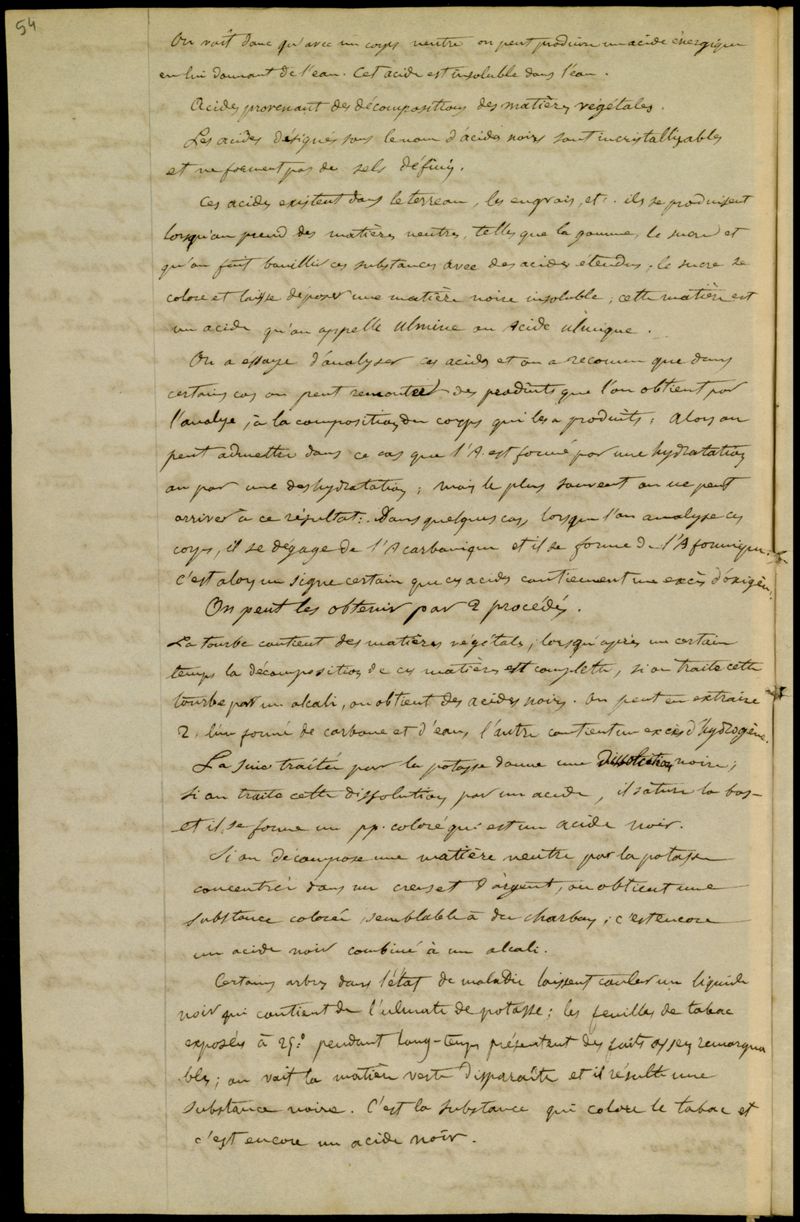 54
On voit donc qu'avec un corps neutre on peut produire un acide énergique
en lui donnant de l'eau. Cet acide est insoluble dans l'eau.
Acides provenant des décompositions des matières végétales.
Les acides désignés sous le nom d'acides noirs sont incristallisables
et ne forment pas de sels définis.
Ces acides existent dans le terreau, les engrais, etc. ils se produisent
lorsqu'on prend des matières neutres, telles que la gomme, le sucre et
qu'on fait bouillir ces substances avec des acides étendus. le sucre se
colore et laisse déposer une matière noire insoluble; cette matière est
un acide qu'on appelle ulmine ou Acide ulmique.
On a essayé d'analyser ces acides et on a reconnu que dans
certains cas on peut remonter des produits que l'on obtient par
l'analyse, à la composition du corps qui les a produits; Alors on
peut admettre dans ce cas que l'A. est formé par une hydratation
ou par une deshydratation; mais le plus souvent on ne peut
arriver à ce résultat. Dans quelques cas, lorsque l'on analyse ces
corps, il se dégage de l'A carbonique et il se forme de l'A formique.
c'est alors un signe certain que ces acides contiennent un excès d'oxigène.
On peut les obtenir par 2 procédés.
La tourbe contient des matières végétales, lorsqu'après un certain
temps la décomposition de ces matières est complette, si on traite cette
tourbe par un alcali, on obtient des acides noirs. On peut en extraire
2, l'un formé de carbone et d'eau, l'autre contient un excès d'hydrogène.
La suie traitée par la potasse donne une dissolution noire;
si on traite cette dissolution par un acide, il sature la base
et il se forme un pp. coloré qui est un acide noir.
Si on décompose une matière neutre par la potasse
concentrée dans un creuset d'argent, on obtient une
substance colorée semblable à du charbon; c'est encore
un acide noir combiné à un alcali.
Certains arbres dans l'état de maladie laissent couler un liquide
noir qui contient de l'ulmate de potasse; les feuilles de tabac
exposées à 25° pendant long-temps présentent des faits assez remarqua
bles; on voit la matière verte disparaître et il résulte une
substance noire. C'est la substance qui colore le tabac et
c'est encore un acide noir.